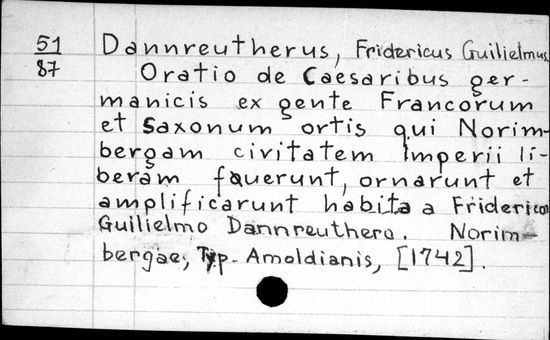 51 Dannreutherus, Fridericus Guilielmus
87 Oratio de Caesaribus ger-
manicis ex gente Francorum
et Saxonum ortis qui Norim-
bergam civitatem Imperii li-
beram fauerunt, ornarunt et
amplificarunt habita a Friderico
Guilielmo Dannreuthero. Norim-
bergae, Typ. Amoldianis, [1742].